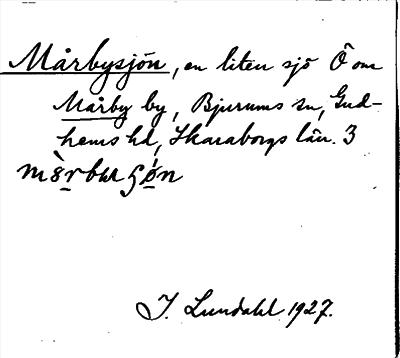 Mårbysjön, en liten sjö Ö om
Mårby by, Bjurums sn, Gud-
hems hd, Skaraborgs län. 3
J. Lundahl 1927.